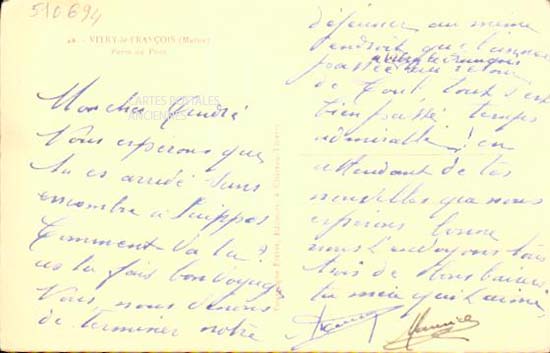 510694
28. - VITRY-le-FRANÇOIS (Marne)
Porte du Pont
CARTES POSTALES
ANCIENNES
Mon cher André
Nous esperons que
tu es arrivé sans
encombre à Suippes
Comment va tu?
as tu fait bon voyage
Nous, nous venons
de terminer notre
déjeuner au meme
endroit que l'année
passée à Vitry le François
de tout tout s'est
bien passé temps
admirable! en
attendant de tes
nouvelles que nous
esperons bonne
nous t'envoyons tous
trois de bons baisers
ta mere qui t'aime
Maurice